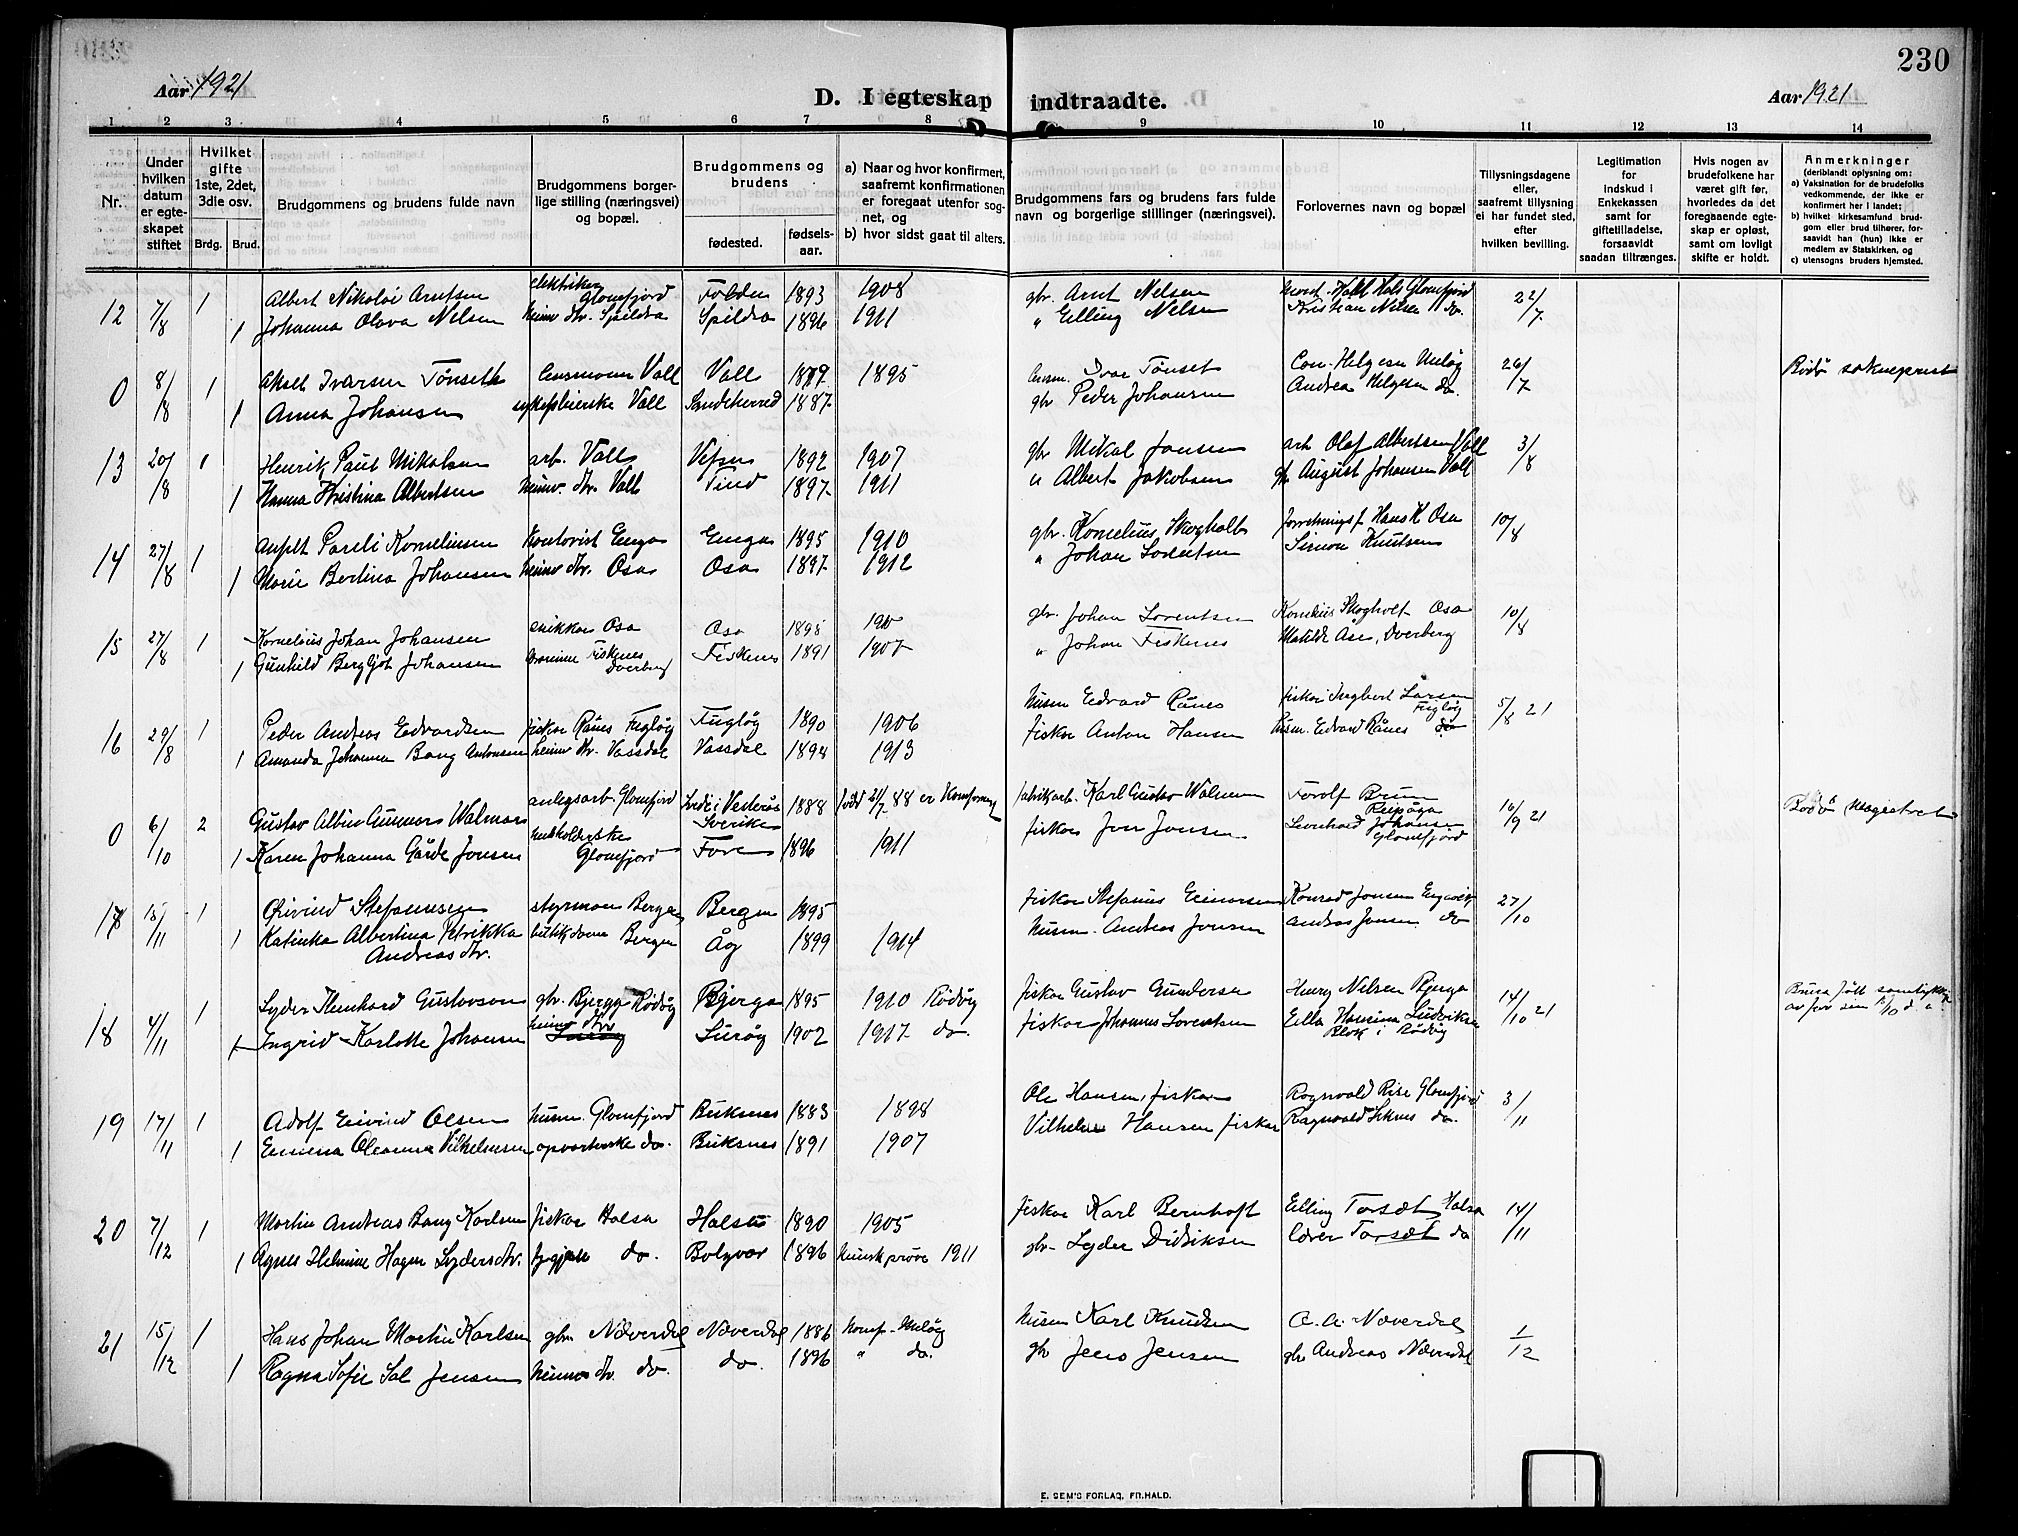 230
Aar 1921
D. I egteskap indtraadte.
Aar 1921
1 2 3 4 5 6 7 8 9 10 11 12 13 14
Nr.
Under hvilken datum er egteskapet stiftet
Hvilket gifte 1ste, 2det, 3die osv.
Brdg. Brud.
Brudgommens og brudens fulde navn
Brudgommens borgerlige stilling (næringsvei) og bopæl.
Brudgommens og brudens
fødested.
fødselsaar.
a) Naar og hvor konfirmert, saafremt konfirmationen er foregaat utenfor sognet, og
b) hvor sidst gaat til alters.
Brudgommens fars og brudens fars fulde navn og borgerlige stillinger (næringsvei).
Forlovernes navn og bopæl
Tillysningsdagene eller, saafremt tillysning ei har fundet sted, efter hvilken bevilling.
Legitimation for indskud i Enkekassen samt for giftetilladelse, forsaavidt saadan tiltrænges.
Hvis nogen av brudefolkene har været gift før, hvorledes da det foregaaende egteskap er opløst, samt om lovligt skifte er holdt.
Anmerkninger
(deriblandt oplysning om:
a) Vaksination for de brudefolks vedkommende, der ikke er konfirmert her i landet;
b) hvilket kirkesamfund brudgom eller brud tilhører, forsaavidt han (hun) ikke er medlem av Statskirken, og
c) utensogns bruders hjemsted.
12 7/8 1 Albert Nikolai Arntsen elektriker Glomfjord Folden 1893 1908 gbr. Arnt Nelsen Glomfjord 22/7
1 Johanna Olava Nelsen heimv. dtr. Spildra Spildra 1896 1911 " Elling Nelsen Kristian Nelsen do.
0 8/8 1 Aksel Ivarsen Tønseth lensmann Vall Vall 1879 1895 lensm. Ivar Tønset Con. Helgesen Meløy 26/7 Bodø sokneprest
1 Anna Johansen sykepleierske Vall Sandeherred 1887 gbr Peder Johansen Andrea Helgesen do.
13 20/8 1 Henrik Paul Mikalsen arb. Vall Vefsn 1892 1907 gbr Mikal Jansen arb Olaf Albertsen Vall 3/8
1 Hanna Kristina Albertsen heimv. dtr. Vall Tind 1897 1911 " Albert Jakobsen gbr August Johansen Vall
14 27/8 1 Pareli Korneliussen kontorist Enga Enga 1895 1910 gbr. Kornelius Skogholt forretningsf. Hans K Osa 10/8
1 Marie Bertina Johansen heimv dtr. Osa Osa 1897 1912 " Johan Lorentsen Simon Knutsen
15 27/8 1 Kornelius Johan Johansen snikker Osa Osa 1895 gbr. Johan Lorentsen Kornelius Skogholt Osa 10/8
1 Gunhild Bergljot Johansen Fiskenes Dverberg Fiskenes 1891 1907 " Johan Fiskenes Matilde Åse, Dverberg
16 29/8 1 Peder Andreas Edvardsen fisker Rånes Fugløy Fugløy 1890 1906 husm Edvard Rånes fisker Ingbert Larsen Fugløy 5/8 21
1 Amanda Johanna Bang Antonsen heimv dtr. Vassdal Vassdal 1894 1913 fisker Anton Hansen husm. Edvard Rånes do
0 6/10 2 Gustav Albin Gunnar Walman anlegsarb. Glomfjord Sverike 1888 født 21/7 88 er fabrikarb. Karl Gustav Walman Torolf Brun Reipåga 16/9 21 Bodø Magistrat
1 Karen Johanna Gårde Jonsen Glomfjord Fore 1896 1911 fisker Jon Jonsen Leonhard Johansen Glomfjord
17 15/11 1 Øivind Stefansen styrmann Bergen Bergen 1895 fisker Stefanus Einarsen Konrad Jonsen 27/10
1 Katinka Albertina Petrikka Andreasdtr. butikdame Bergen Åg 1899 1914 husm. Andreas Jonsen Andreas Jonsen do
18 4/11 1 Lyder Gustavsen gbr. Bjerga Rødøy Bjerga 1895 1910 Rødøy fisker Gustav Gundersen Henry Nelsen Bjerga 14/10 21
1 Ingrid Karlotte Johansen heimv dtr Surøy 1902 1917 do. fisker Johannes Lorentsen Ella Hansina Ludviksen Blok i Rødøy
19 17/11 1 Adolf Eivind Olsen husm. Glomfjord Buksnes 1883 1898 Ole Hansen, fisker Ragnvald Rise Glomfjord 3/11
1 Emma Oleanna Vilhelmsen opvarterske do. Buksnes 1891 1907 Vilhelm Hansen fisker Ragnvald do.
20 7/12 1 Martin Andreas Bang Karlsen fisker Halsa Halsa 1890 1905 fisker Karl Bernhoft Elling Torsæt Halsa 14/11
1 Agnes Helmine Hagen Lydersdtr. do. Bolgvær 1896 1911 gbr. Lyder Didriksen lærer Torsæt do
21 15/12 1 Hans Johan Martin Karlsen gbr Næverdal Næverdal 1886 konf. Meløy husm Karl Knudsen A. A. Næverdal 1/12
1 Ragna Sofie Sol Jensen heimv dtr. do. do. 1896 " do. gbr Jens Jensen gbr Andreas Næverdal
E. SEM'S FORLAG, FR.HALD.